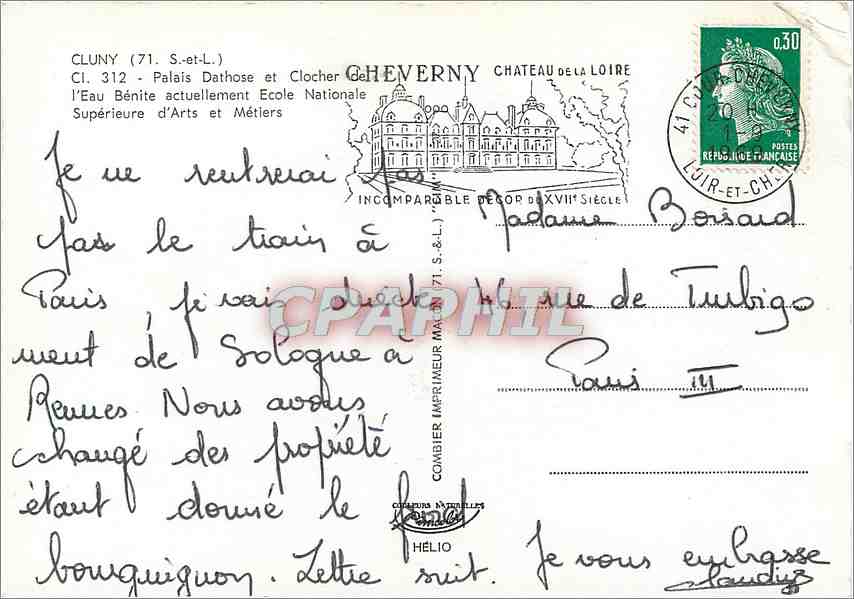 CLUNY (71. S.-et-L.)
Cl. 312 - Palais Dathose et Clocher de
l'Eau Bénite actuellement Ecole Nationale
Supérieure d'Arts et Métiers
CHEVERNY CHATEAU DE LA LOIRE
INCOMPARABLE DECOR DU XVIIe SIÈCLE
0,30
POSTES
REPUBLIQUE FRANÇAISE
41 COUR-CHEVERNY
1968
LOIR-ET-CHER
Je ne rentrerai pas
par le train à
Paris, je vais directe
ment de Sologne à
Rennes. Nous avons
changé des propriété
étant donné le froid
bourguignon. Lettre suit. Je vous embrasse
Claudius
Madame Borsard
46 rue de Turbigo
Paris III
COMBIER IMPRIMEUR MACON (71. S.-&-L.) "CIM"
COULEURS NATURELLES
HÉLIO
CPAPHIL